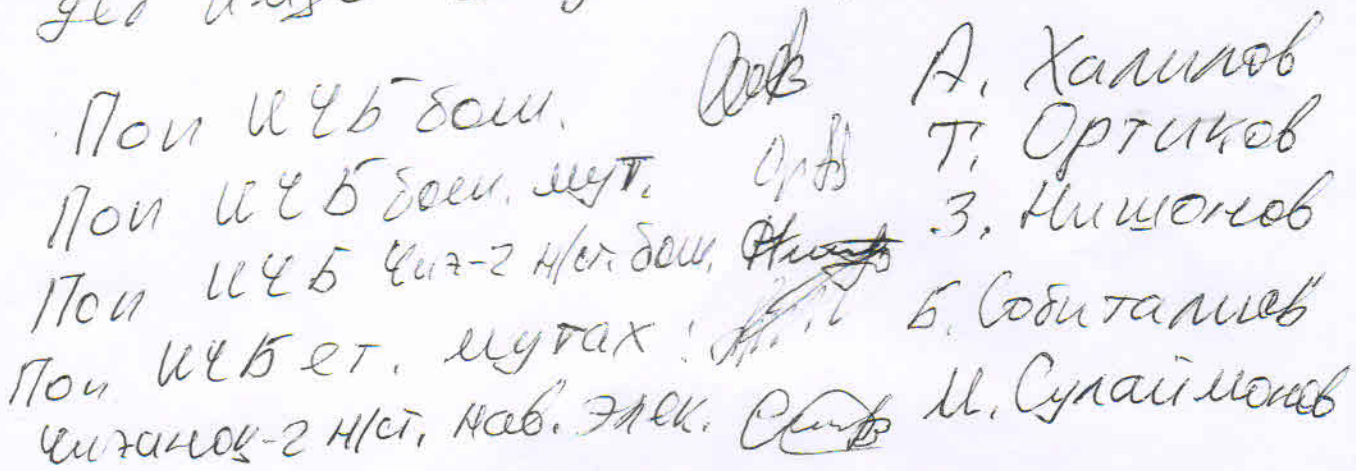 Поп ИЧБ бош. А. Халилов
Поп ИЧБ бош. мут. Т. Ортиков
Поп ИЧБ Чиз-2 н/ст. бош. З. Нишонов
Поп ИЧБ ет. мутах: Б. Собиталиев
н/ст. нав. элек. М. Сулаймонов